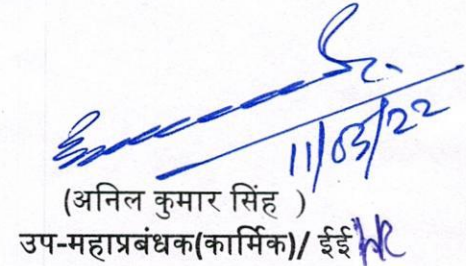 11/03/22
(अनिल कुमार सिंह )
उप-महाप्रबंधक(कार्मिक)/ ईई